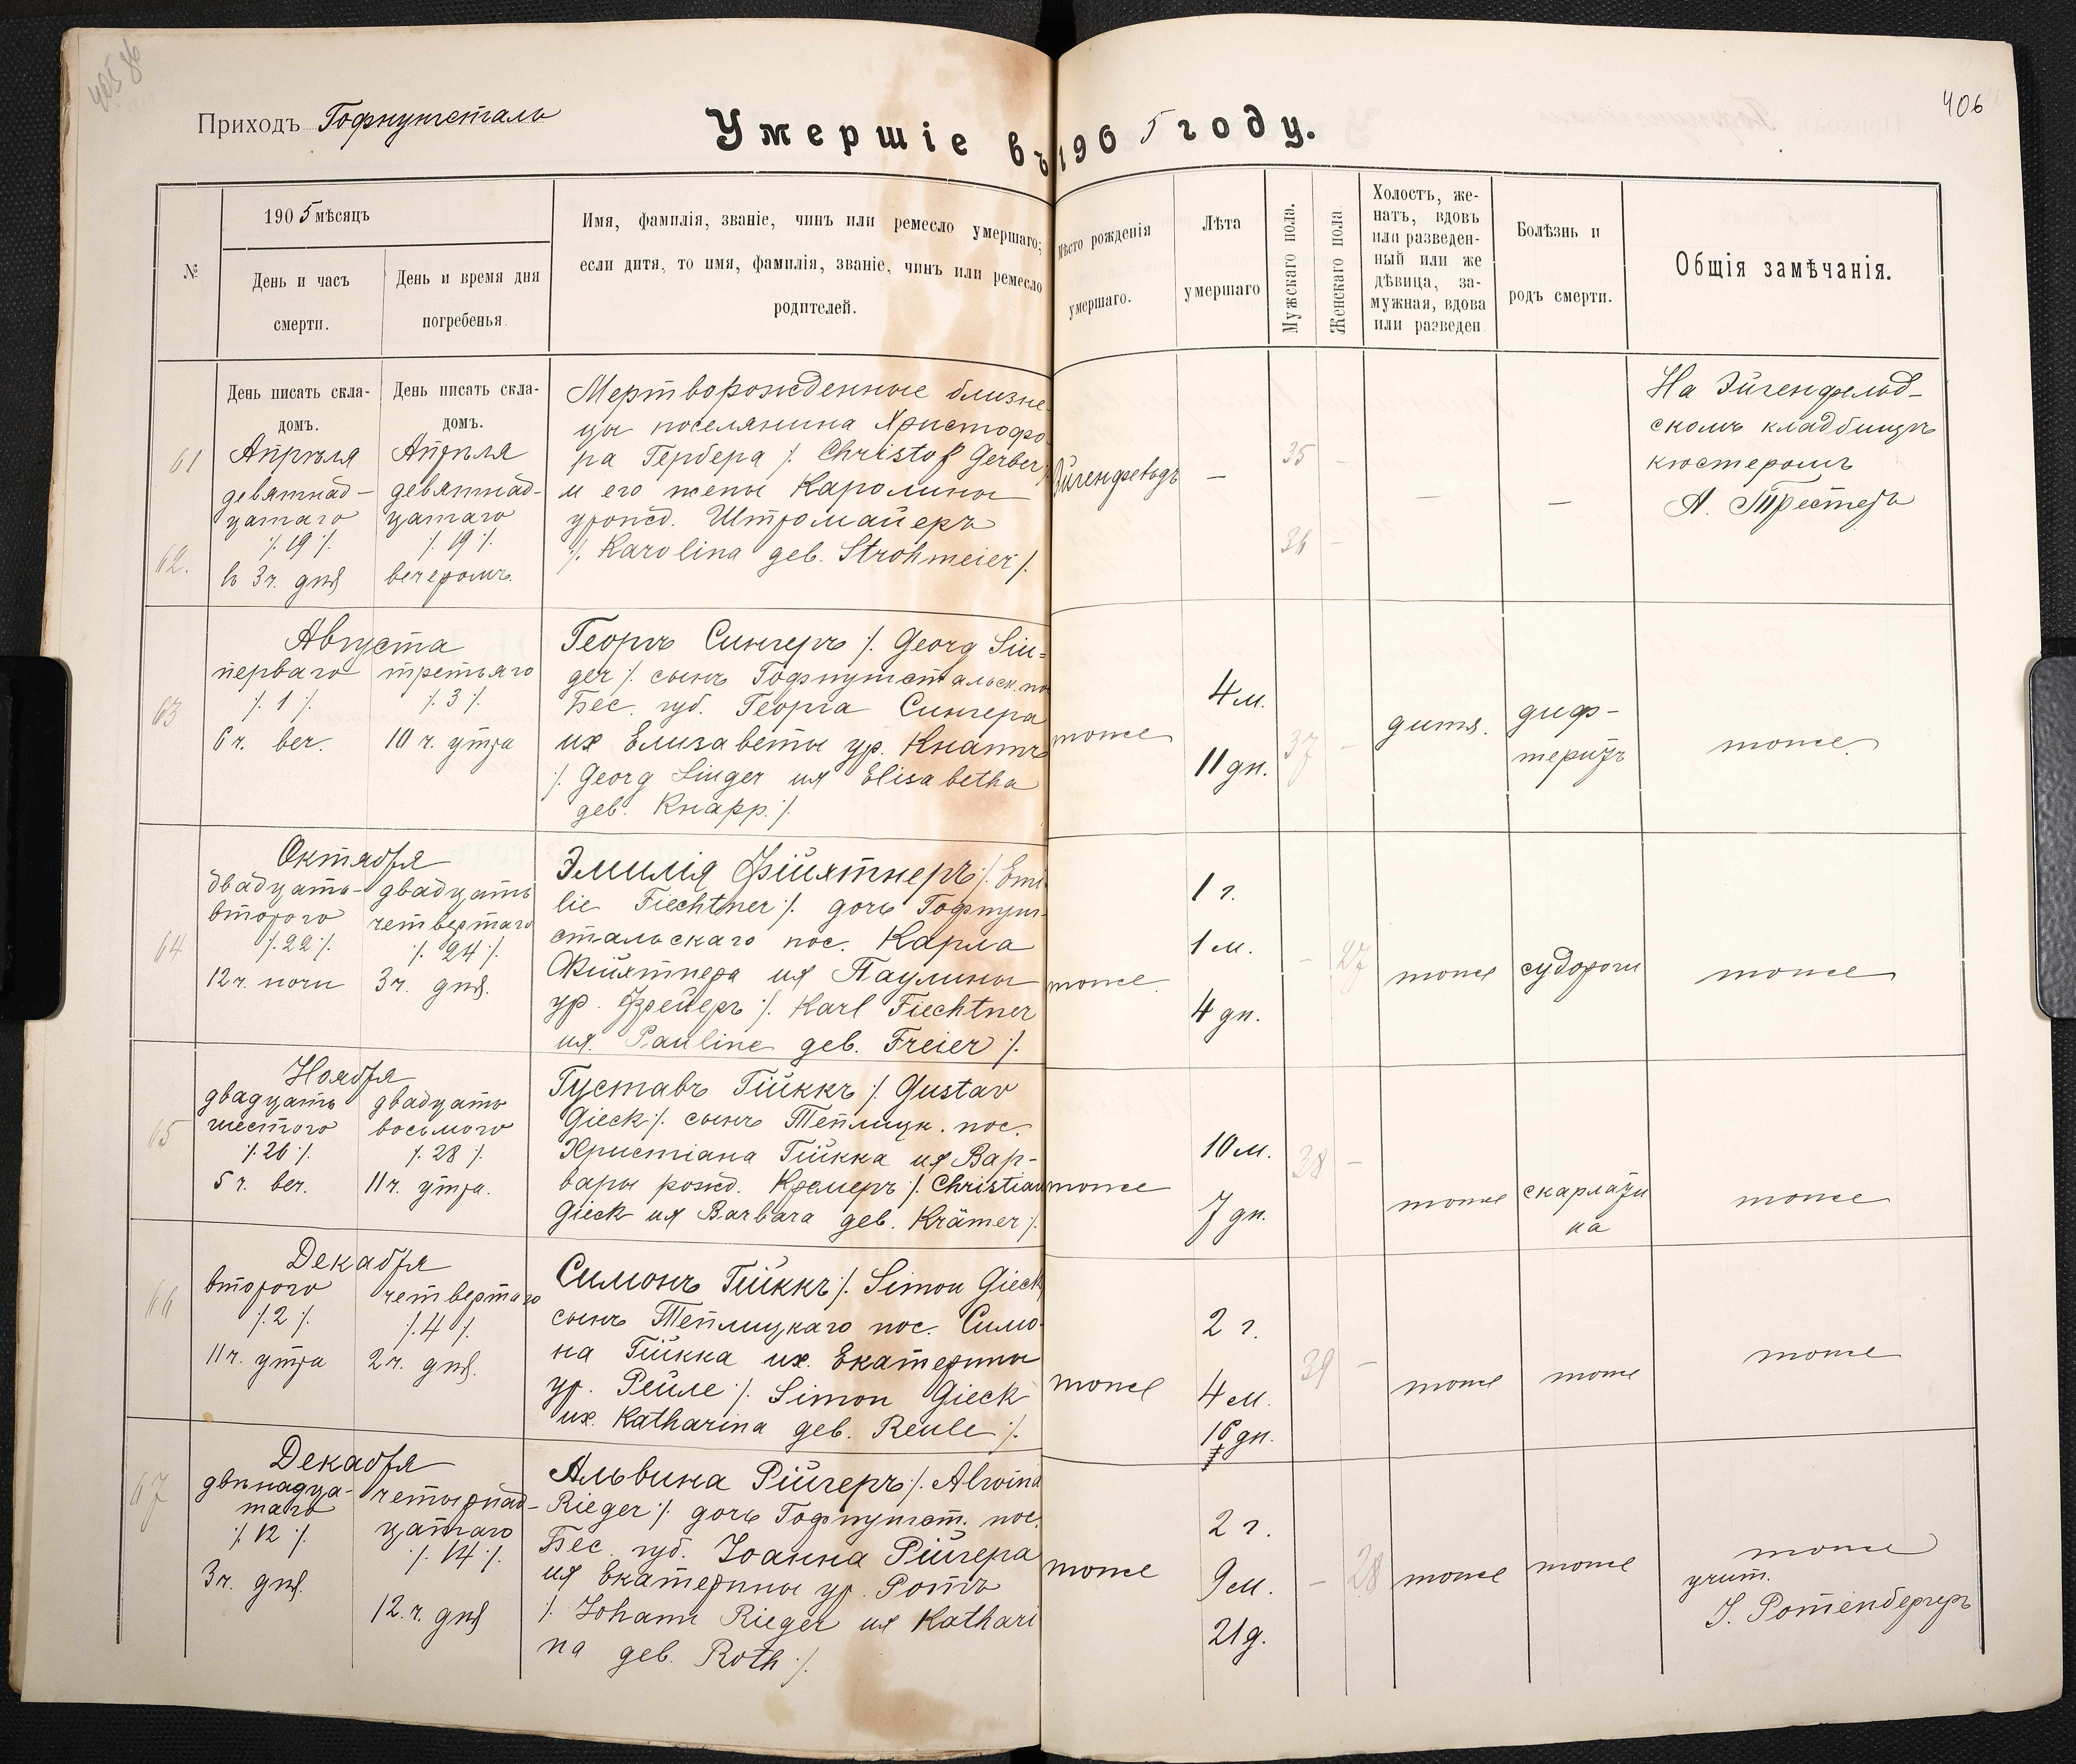 406
Приходъ Гофнунгсталь
Умершіе въ 1905 году.
№
1905 мѣсяцъ
День и часъ
смерти.
День и время дня
погребенья.
Имя, фамилія, званіе, чинъ или ремесло умершаго;
если дитя, то имя, фамилія, званіе, чинъ или ремесло
родителей.
Мѣсто рожденія
умершаго.
Лѣта
умершаго
Мужскаго пола.
Женскаго пола
Холостъ, же-
натъ, вдовъ
или разведен-
ный или же
дѣвица, за-
мужная, вдова
или разведен.
Болѣзнь и
родъ смерти.
Общія замѣчанія.
День писать скла-
домъ.
День писать скла-
домъ.
61
62.
Апрѣля
девятнад-
цатаго
/. 19 /.
въ 3 ч. дня
Апрѣля
девятнад-
цатаго
/. 19 /.
вечеромъ.
Мертворожденные близне-
цы поселянина Христофо-
ра Гербера /. Christof Gerber /.
и его жены Каролины
урожд. Штромайеръ
/. Karolina geb. Strohmeier /.
Эйгенфельдъ
—
35 –
36 –
—
—
На Эйгенфельд-
скомъ кладбищѣ
кюстеромъ
А. Трестеръ
63
Августа
перваго
/. 1 /.
6 ч. веч.
третьяго
/. 3 /.
10 ч. утра
Георгъ Сингеръ /. Georg Sin-
ger /. сынъ Гофнунгстальск. по
Бес. губ. Георга Сингера
их Елизаветы ур. Кнаппъ
/. Georg Singer их Elisabetha
geb. Knapp. /.
тоже
4 м.
11 дн.
37 –
дитя.
диф-
теритъ
тоже.
64
Октября
двадцать-
второго
/. 22 /.
12 ч. ночи
двадцать
четвертаго
/. 24 /.
3 ч. дня.
Эмилія Фійхтнеръ /. Emi-
lie Fiechtner /. дочь Гофнунг-
стальскаго пос. Карла
Фійхтнера их Паулины
ур. Фрейеръ /. Karl Fiechtner
их. Pauline geb. Freier /.
тоже.
1 г.
1 м.
4 дн.
– 27
тоже
судороги
тоже
65
Ноября
двадцать
шестого
/. 26 /.
5 ч. веч.
двадцать
восьмого
/. 28 /.
11 ч. утра.
Густавъ Гійккъ /. Gustav
Gieck /. сынъ Теплицк. пос.
Христіана Гійкка их Вар-
вары рожд. Кремеръ /. Christian
Gieck их Barbara geb. Krämer /.
тоже
10 м.
7 дн.
38 –
тоже
скарлати
на
тоже
66
Декабря
второго
/. 2 /.
11 ч. утра
четвертаго
/. 4 /.
2 ч. дня.
Симонъ Гійккъ /. Simon Gieck
сынъ Теплицкаго пос. Симо-
на Гійкка их. Екатерины
ур. Рейле /. Simon Gieck
их. Katharina geb. Reule /.
тоже
2 г.
4 м.
дн.
39 –
тоже
тоже
тоже
67
Декабря
двѣнадца-
таго
/. 12 /.
3 ч. дня.
четырнад-
цатаго
/. 14 /.
12. ч. дня
Альвина Рійгеръ /. Alwina
Rieger /. дочь Гофнунгст. пос.
Бес. губ. Іоанна Рійгера
их Екатерины ур. Ротъ
/. Johann Rieger их Kathari
na geb. Roth /.
тоже
2 г.
9 м.
21 д.
– 28
тоже
тоже
тоже
учит.
І. Ротенбергеръ